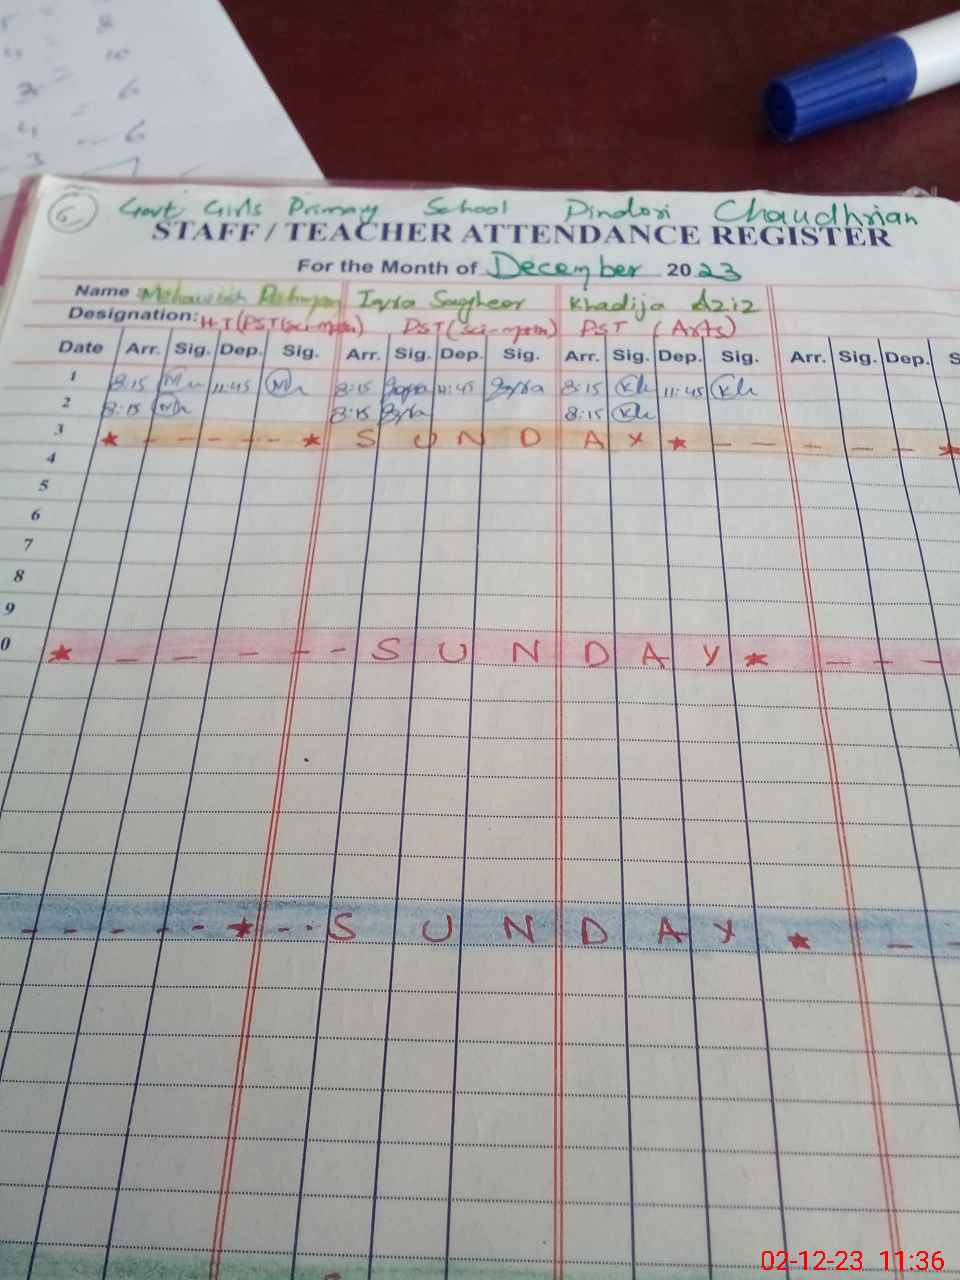 5 - 8
10
2 - 6
4 - 6
3
6
Govt Girls Primary School Dindori Chaudhrian
STAFF / TEACHER ATTENDANCE REGISTER
For the Month of December 2023
Name Mehawish Rehman Iqra Sagheer Khadija Aziz
Designation: H.T (PST(sci-math) PST(sci-math) PST (Arts)
Date Arr. Sig. Dep. Sig. Arr. Sig. Dep. Sig. Arr. Sig. Dep. Sig. Arr. Sig. Dep. S
1 8:15 11:45 8:15 Iqra 11:45 Iqra 8:15 Kh 11:45 Kh
2 8:15 8:15 Iqra 8:15 Kh
3 * - - - - - * S U N D A Y * - - - - - *
4
5
6
7
8
9
0 * - - - - - S U N D A Y * - - -
- - - - - * - - S U N D A Y * - -
02-12-23 11:36